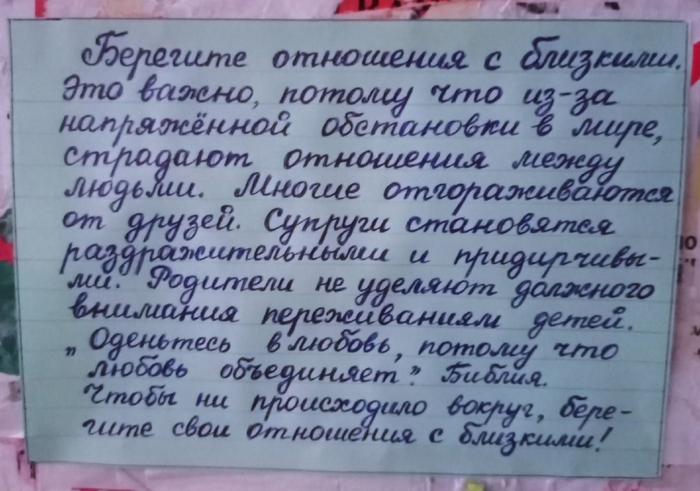 Берегите отношения с близкими.
Это важно, потому что из-за
напряжённой обстановки в мире,
страдают отношения между
людьми. Многие отгораживаются
от друзей. Супруги становятся
раздражительными и придирчивы-
ми. Родители не уделяют должного
внимания переживаниям детей.
„Оденьтесь в любовь, потому что
любовь объединяет". Библия.
Чтобы ни происходило вокруг, бере-
гите свои отношения с близкими!